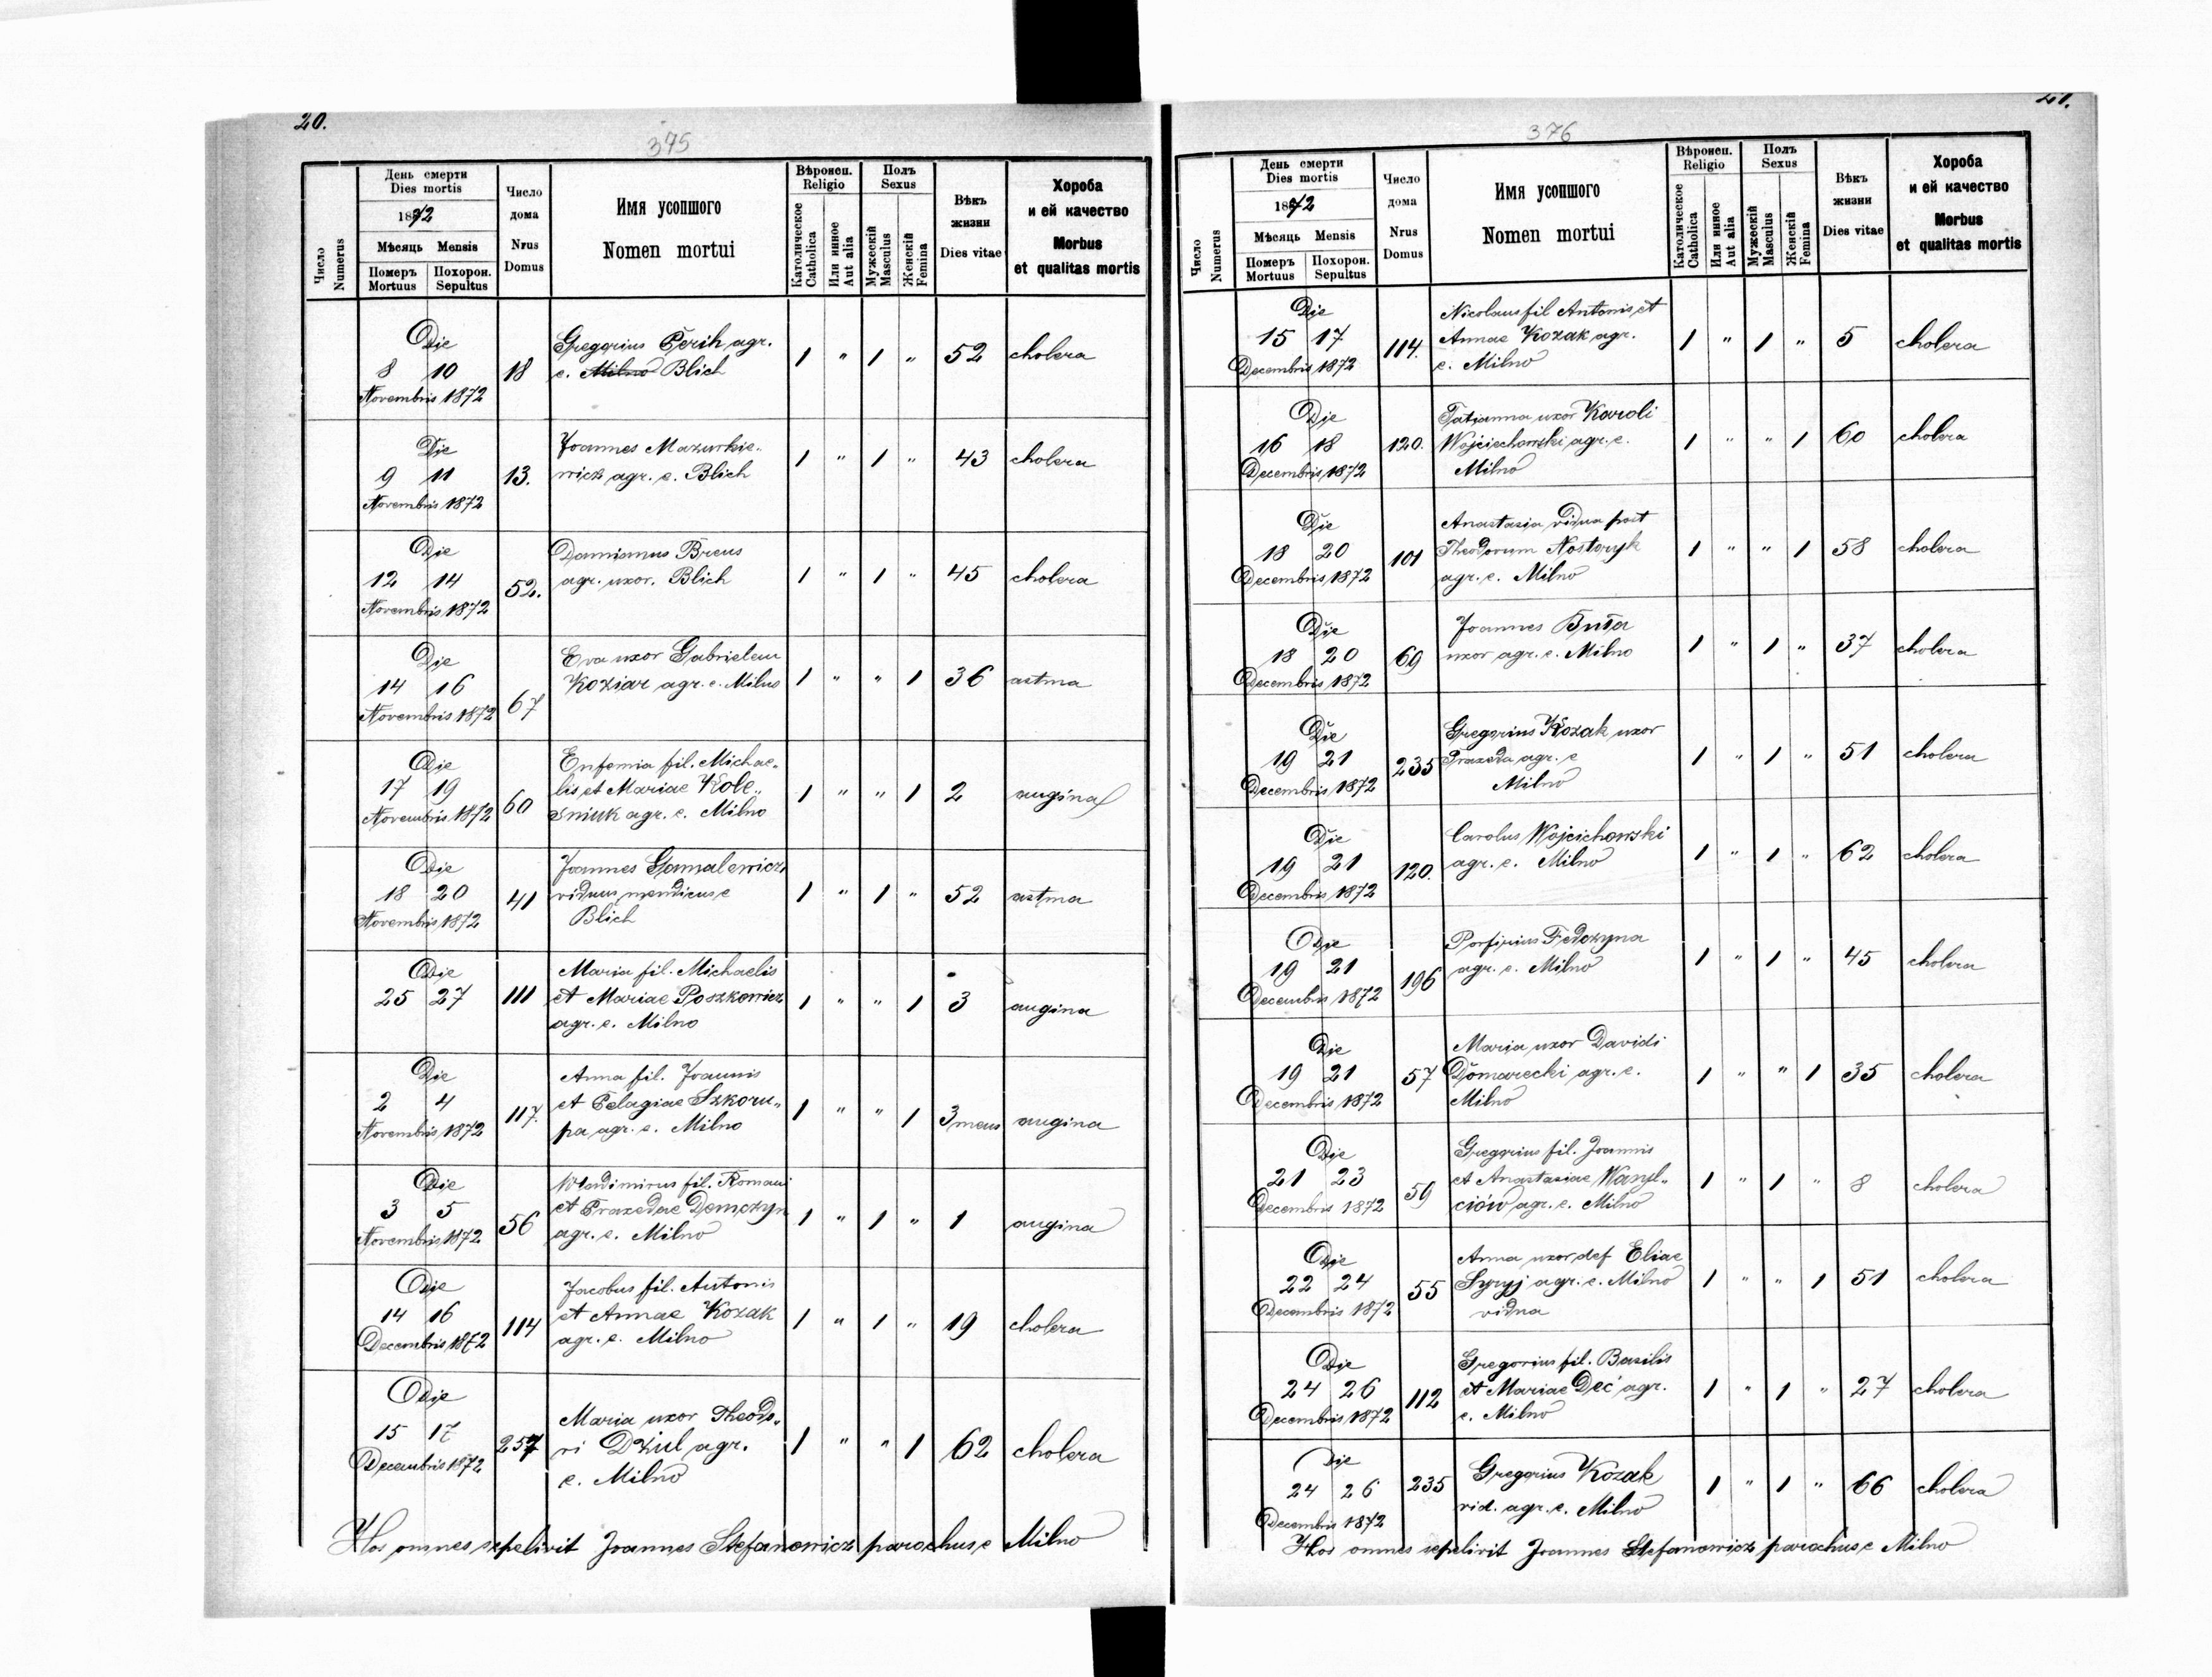 20.
375
Число
Numerus
День смерти
Dies mortis
1872
Мѣсяць Mensis
Померъ
Mortuus
Похорон.
Sepultus
Число
дома
Nrus
Domus
Имя усопшого
Nomen mortui
Вѣроисп.
Religio
Католическое
Catholica
Или инное
Aut alia
Полъ
Sexus
Мужескій
Masculus
Женскій
Femina
Вѣкъ
жизни
Dies vitae
Хороба
и ей качество
Morbus
et qualitas mortis
Die
8 10
Novembris 1872
18
Gregorius Perih agr.
e. Milno Blich
1 " 1 " 52 cholera
Die
9 11
Novembris 1872
13.
Joannes Mazurkie„
wicz agr. e. Blich
1 " 1 " 43 cholera
Die
12 14
Novembris 1872
52.
Damianus Breus
agr. uxor. Blich
1 " 1 " 45 cholera
Die
14 16
Novembris 1872
67
Eva uxor Gabrielem
Koziar agr. e. Milno
1 " " 1 36 astma
Die
17 19
Novembris 1872
60
Eufemia fil. Michae„
lis et Mariae Kole„
śniuk agr. e. Milno
1 " " 1 2 angina
Die
18 20
Novembris 1872
41
Joannes Gamalewicz
viduus mendicus e
Blich
1 " 1 " 52 astma
Die
25 27
111
Maria fil. Michaelis
et Mariae Poszkowicz
agr. e. Milno
1 " " 1 3 angina
Die
2 4
Novembris 1872
117.
Anna fil. Joannis
et Pelagiae Szkoru„
pa agr. e. Milno
1 " " 1 3 mens angina
Die
3 5
Novembris 1872
56
Wladimirus fil. Romani
et Praxedae Demczyn
agr. e. Milno
1 " 1 " 1 angina
Die
14 16
Decembris 1872
114
Jacobus fil. Antonis
et Annae Kozak
agr. e. Milno
1 " 1 " 19 cholera
Die
15 17
Decembris 1872
257
Maria uxor Theodo„
ri Dziul agr.
e. Milno
1 " " 1 62 cholera
Hos omnes sepelivit Joannes Stefanowicz parochus e Milno
21.
376
Число
Numerus
День смерти
Dies mortis
1872
Мѣсяць Mensis
Померъ
Mortuus
Похорон.
Sepultus
Число
дома
Nrus
Domus
Имя усопшого
Nomen mortui
Вѣроисп.
Religio
Католическое
Catholica
Или инное
Aut alia
Полъ
Sexus
Мужескій
Masculus
Женскій
Femina
Вѣкъ
жизни
Dies vitae
Хороба
и ей качество
Morbus
et qualitas mortis
Die
15 17
Decembris 1872
114.
Nicolaus fil Antonis et
Annae Kozak agr.
e. Milno
1 " 1 " 5 cholera
Die
16 18
Decembris 1872
120.
Tatianna uxor Karoli
Wojciechowski agr. e.
Milno
1 " " 1 60 cholera
Die
18 20
Decembris 1872
101
Anastasia vidua post
Theodorum Nostoryk
agr. e. Milno
1 " " 1 58 cholera
Die
18 20
Decembris 1872
69
Joannes Buta
uxor agr. e. Milno
1 " 1 " 37 cholera
Die
19 21
Decembris 1872
235
Gregorius Kozak uxor
Praxeda agr. e
Milno
1 " 1 " 51 cholera
Die
19 21
Decembris 1872
120.
Carolus Wojcichowski
agr. e. Milno
1 " 1 " 62 cholera
Die
19 21
Decembris 1872
196
Porfirius Fedczyna
agr. e. Milno
1 " 1 " 45 cholera
Die
19 21
Decembris 1872
57
Maria uxor Davidi
Domarecki agr. e.
Milno
1 " " 1 35 cholera
Die
21 23
Decembris 1872
59
Gregorius fil. Joannis
et Anastasiae Wasyl„
ciów agr. e. Milno
1 " 1 " 8 cholera
Die
22 24
Decembris 1872
55
Anna uxor def Eliae
Syryj agr. e. Milno
vidua
1 " " 1 51 cholera
Die
24 26
Decembris 1872
112
Gregorius fil. Basilis
et Mariae Deć agr.
e. Milno
1 " 1 " 27 cholera
Die
24 26
Decembris 1872
235
Gregorius Kozak
vid. agr. e. Milno
1 " 1 " 66 cholera
Hos omnes sepelivit Joannes Stefanowicz parochus e Milno